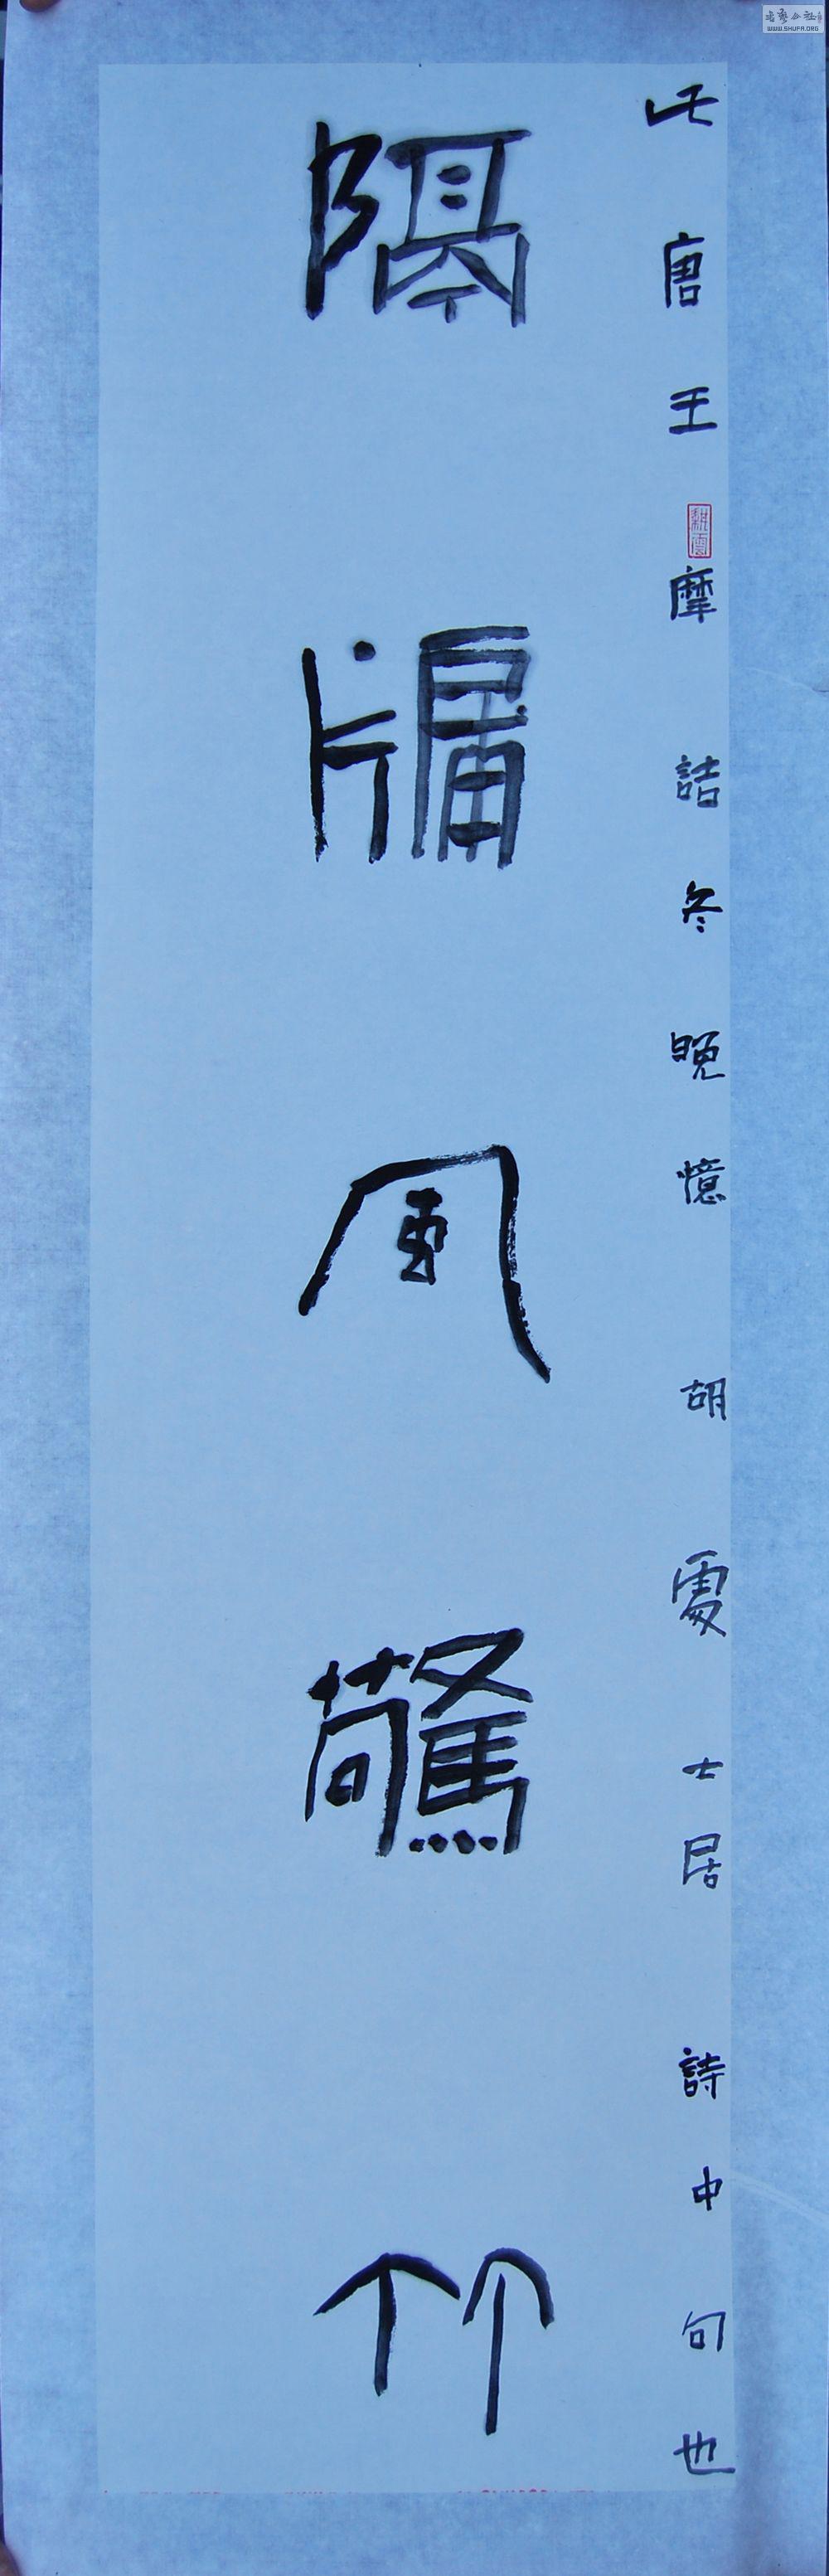 此唐王摩詰冬晚憶胡處士居詩中句也
隔牖風驚竹
耕雲
WWW.SHUFA.ORG